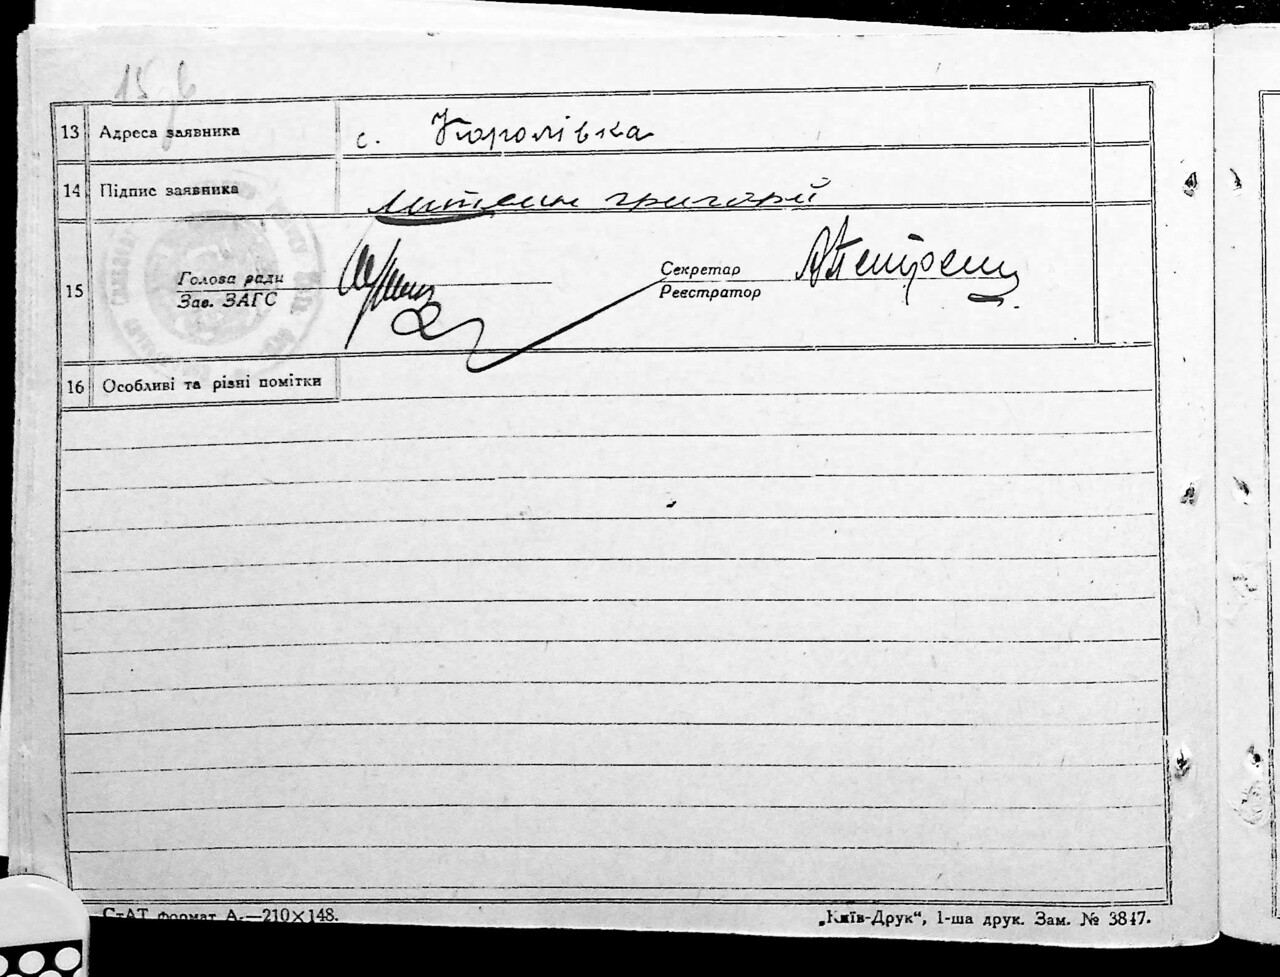 13 Адреса заявника с. Королівка
14 Підпис заявника Литвин Григорій
15 Голова ради
Зав. ЗАГС
Секретар
Реєстратор
16 Особливі та різні помітки
СтАТ формат А₅—210×148.
„Київ-Друк“, 1-ша друк. Зам. № 3847.